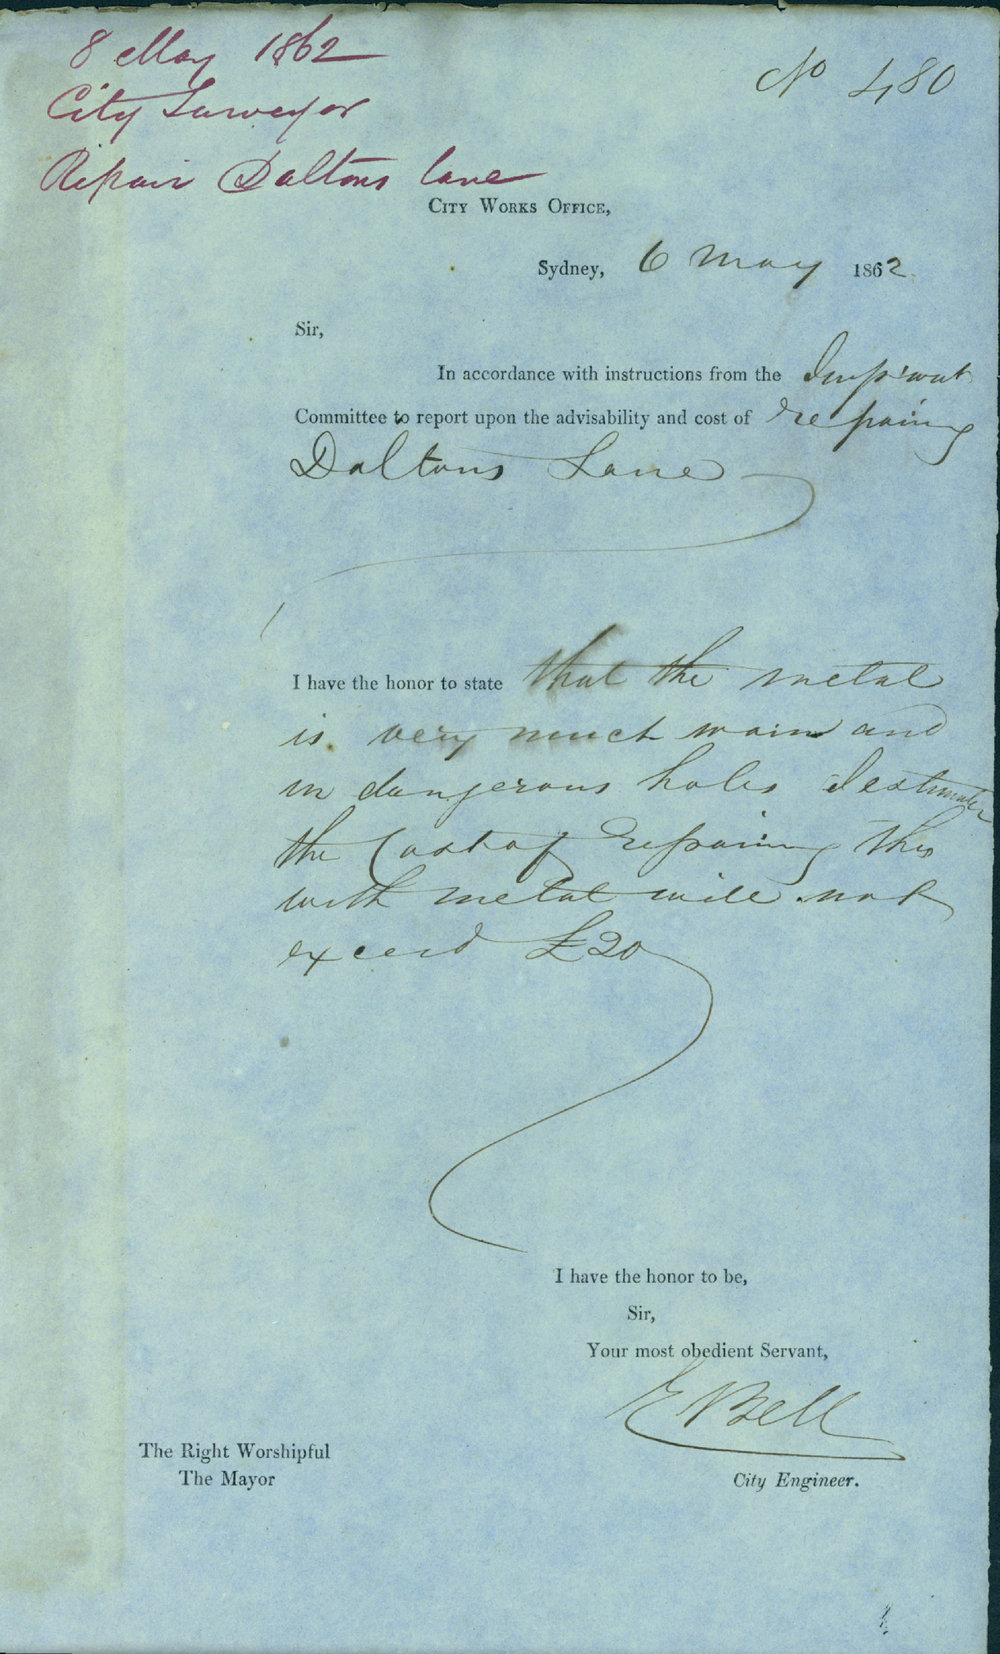 8 May 1862
City Surveyor
Repair Daltons lane
No 480
CITY WORKS OFFICE,
Sydney, 6 May 1862
Sir,
In accordance with instructions from the Imp'ment
Committee to report upon the advisability and cost of repairing
Daltons Lane
I have the honor to state that the metal
is very much worn and
in dangerous holes I estimate
the Cost of repairing this
with metal will not
exceed £20
I have the honor to be,
Sir,
Your most obedient Servant,
E Bell
City Engineer.
The Right Worshipful
The Mayor